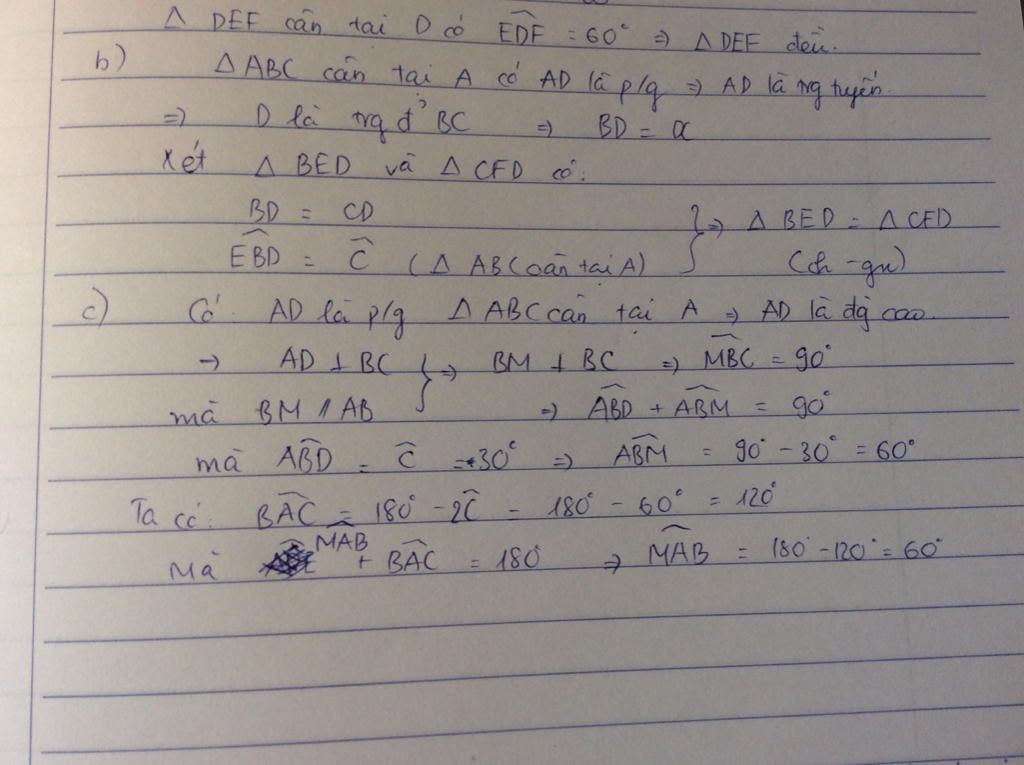 Δ DEF cân tại D có EDF = 60° => Δ DEF đều.
b) Δ ABC cân tại A có AD là p/g => AD là trg tuyến.
=> D là trg đ' BC => BD = DC
Xét Δ BED và Δ CFD có:
BD = CD
EBD = C (Δ ABC cân tại A) } => Δ BED = Δ CFD
(ch - gn)
c) Có AD là p/g Δ ABC cân tại A => AD là đg cao.
→ AD ⊥ BC } => BM ⊥ BC => MBC = 90°
mà BM // AB => ABD + ABM = 90°
mà ABD = C = 30° => ABM = 90° - 30° = 60°
Ta có: BAC = 180° - 2C = 180° - 60° = 120°
Mà MAB + BAC = 180° => MAB = 180° - 120° = 60°